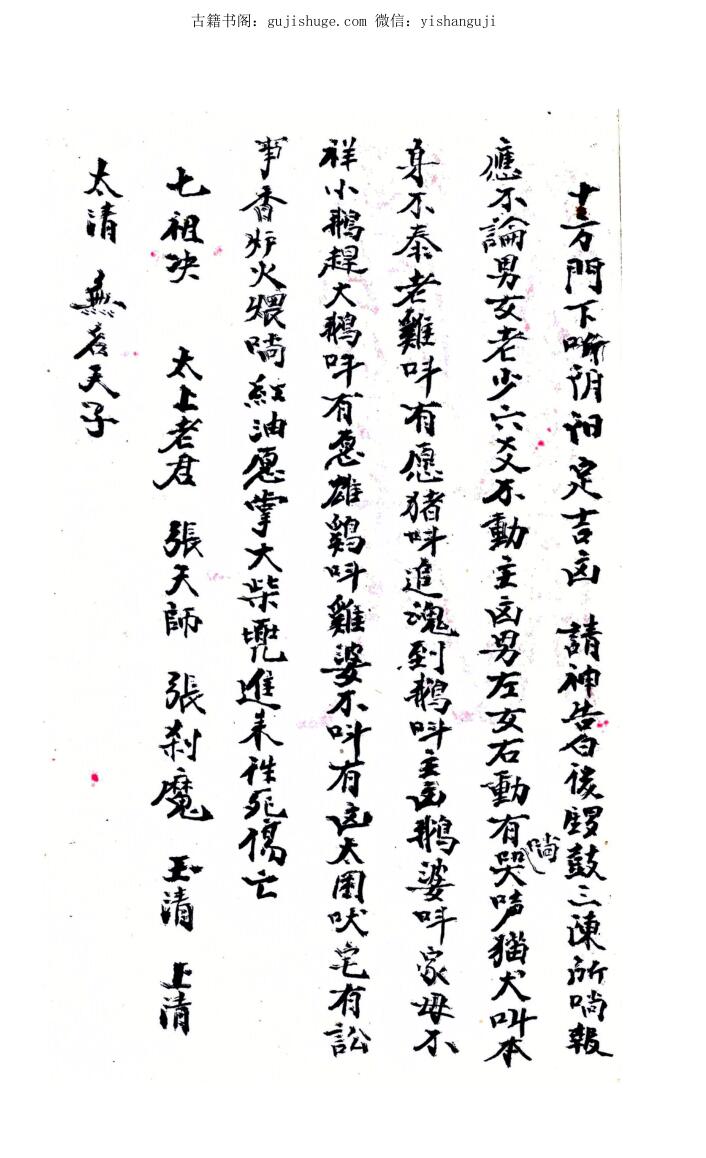 古籍书阁：gujishuge.com 微信：yishanguji
十二万門下喻阴阳定吉凶 請神告白後鑼鼓三陳所喃報
應不論男女老少六爻不動主凶男左女右動有哭喃声猫犬叫本
身不泰老雞叫有愿猪叫追魂到鵝叫主凶鵝婆叫家母不
祥小鵝趕大鵝叫有愿雄鷄叫雞婆不叫有凶太围吠宅有訟
事香炉火煨喃紅油愿掌大柴兜進来誅死傷亡
七祖决 太上老君 張天師 張刹魔 玉清 上清
太清 無名天子